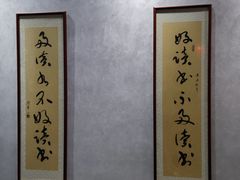 好读书不好读书
好读书不好读书